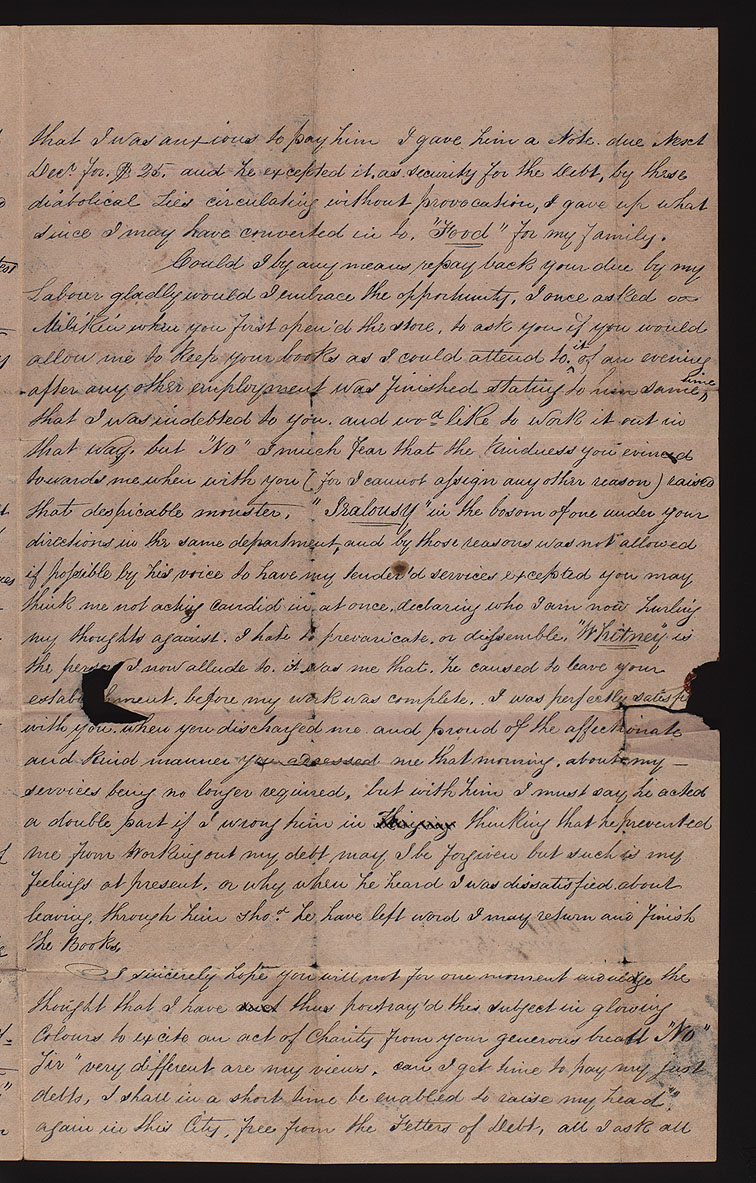 that I was anxious to pay him I gave him a Note due Next
Decr. for. $ 25. and he excepted it. as. security for the Debt, by these
diabolical Lies circulating without provocation, I gave up what
since I may have converted in to. "Food" for my family.
Could I by any means repay back your due by my
Labour gladly would I embrace the opportunity, I once asked
Miliken when you first open'd the store, to ask you if you would
allow me to keep your books as I could attend to. it of an evening
after any other employment was finished stating to him same time,
that I was indebted to you. and wod like to work it out in
that way. but "No" I much fear that the kindness you evinced
towards me when with you (for I cannot assign any other reason) raised
that despicable monster, "Jealousy" in the bosom of one under your
directions in the same department, and by those reasons was not allowed
if possible by his voice to have my tender'd services excepted you may
think me not acting candid in at once declaring who I am now hurling
my thoughts against. I hate to prevaricate. or dissemble, "Whitney" is
the person I now allude to. it was me that. he caused to leave your
estab hment. before my work was complete. I was perfectly satisf
with you. when you discharged me and proud of the affectionate
and kind manner you adressed me that morning, about my
services being no longer required, but with him I must say he acted
a double part if I wrong him in thinking that he prevented
me from Working out my debt may I be forgiven but such is my
feelings at present. or why when he heard I was dissatisfied about
leaving, through him shod he have left word I may return and finish
the Books,
I sincerely hope you will not for one moment indulge the
thought that I have thus portray'd this subject in glowing
Colours to excite an act of Charity from your generous breast "No"
Sir" very different are my views, can I get time to pay my just
debts, I shall in a short time be enabled to raise my head",
again in this City, free from the Fetters of Debt, all I ask all